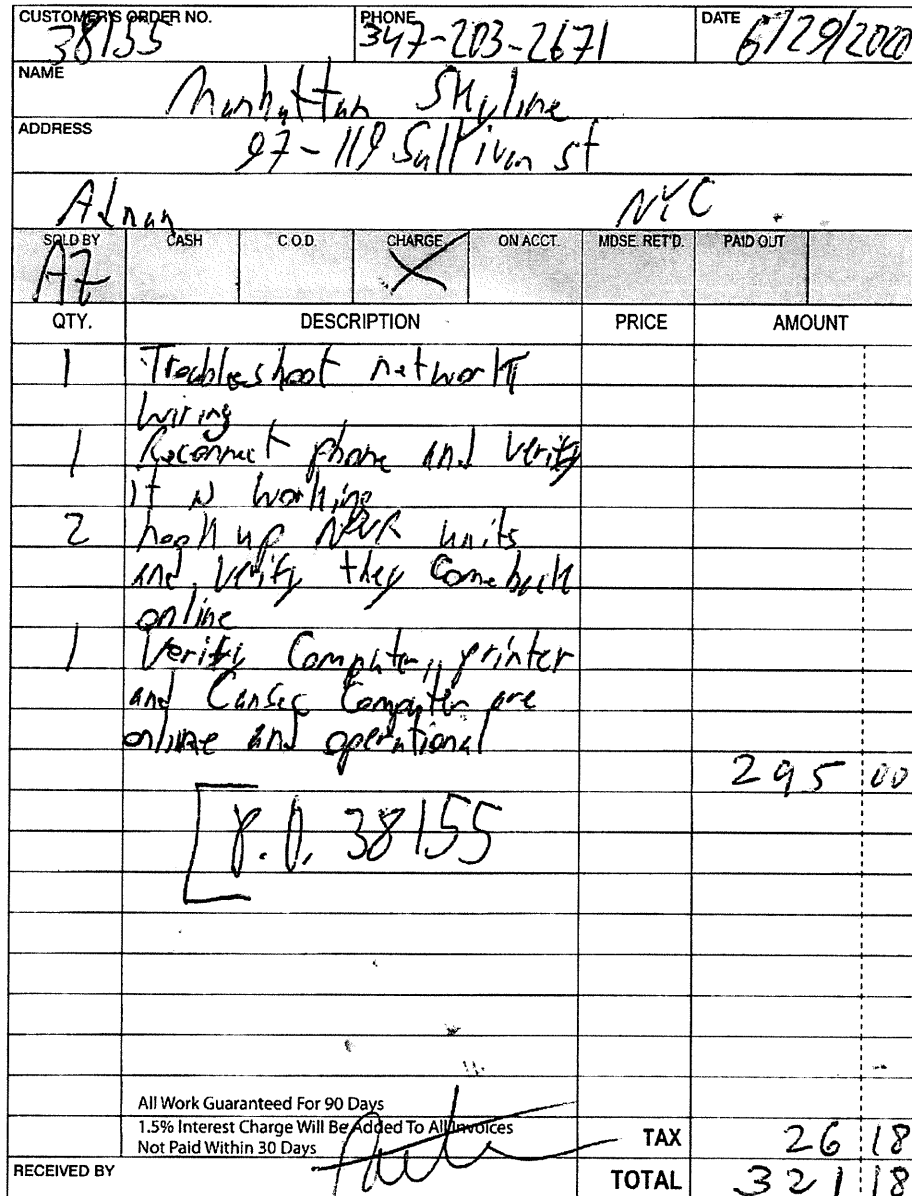 CUSTOMER'S ORDER NO. PHONE DATE
38155 347-203-2671 6/29/2020
NAME
Manhattan Skyline
ADDRESS
97-119 Sullivan st
Adnan NYC
SOLD BY CASH C.O.D. CHARGE ON ACCT. MDSE. RET'D. PAID OUT
AZ X
QTY. DESCRIPTION PRICE AMOUNT
1 Troubleshoot network
wiring
1 Reconnect phone and verify
it is working
2 hook up NVR units
and verify they come back
online
1 Verify Computer, printer
and Cansec Computer are
online and operational
295 00
P.O. 38155
All Work Guaranteed For 90 Days
1.5% Interest Charge Will Be Added To All Invoices
Not Paid Within 30 Days
TAX 26 18
RECEIVED BY TOTAL 321 18